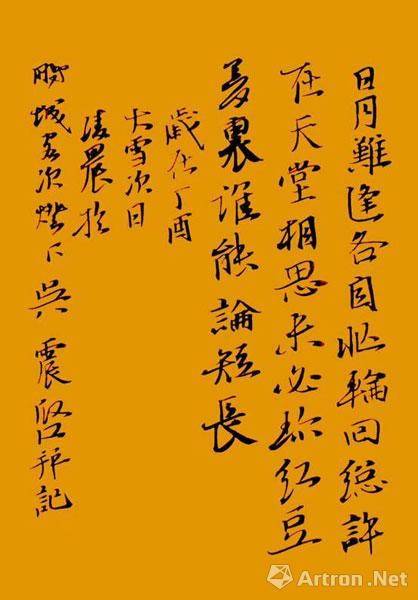 日月難逢各自忙輪回總許
在天堂相思未必珍紅豆
夢裏誰能論短長
歲在丁酉
大雪次日
凌晨於
城客次燈下吳震啓拜記
Artron.Net